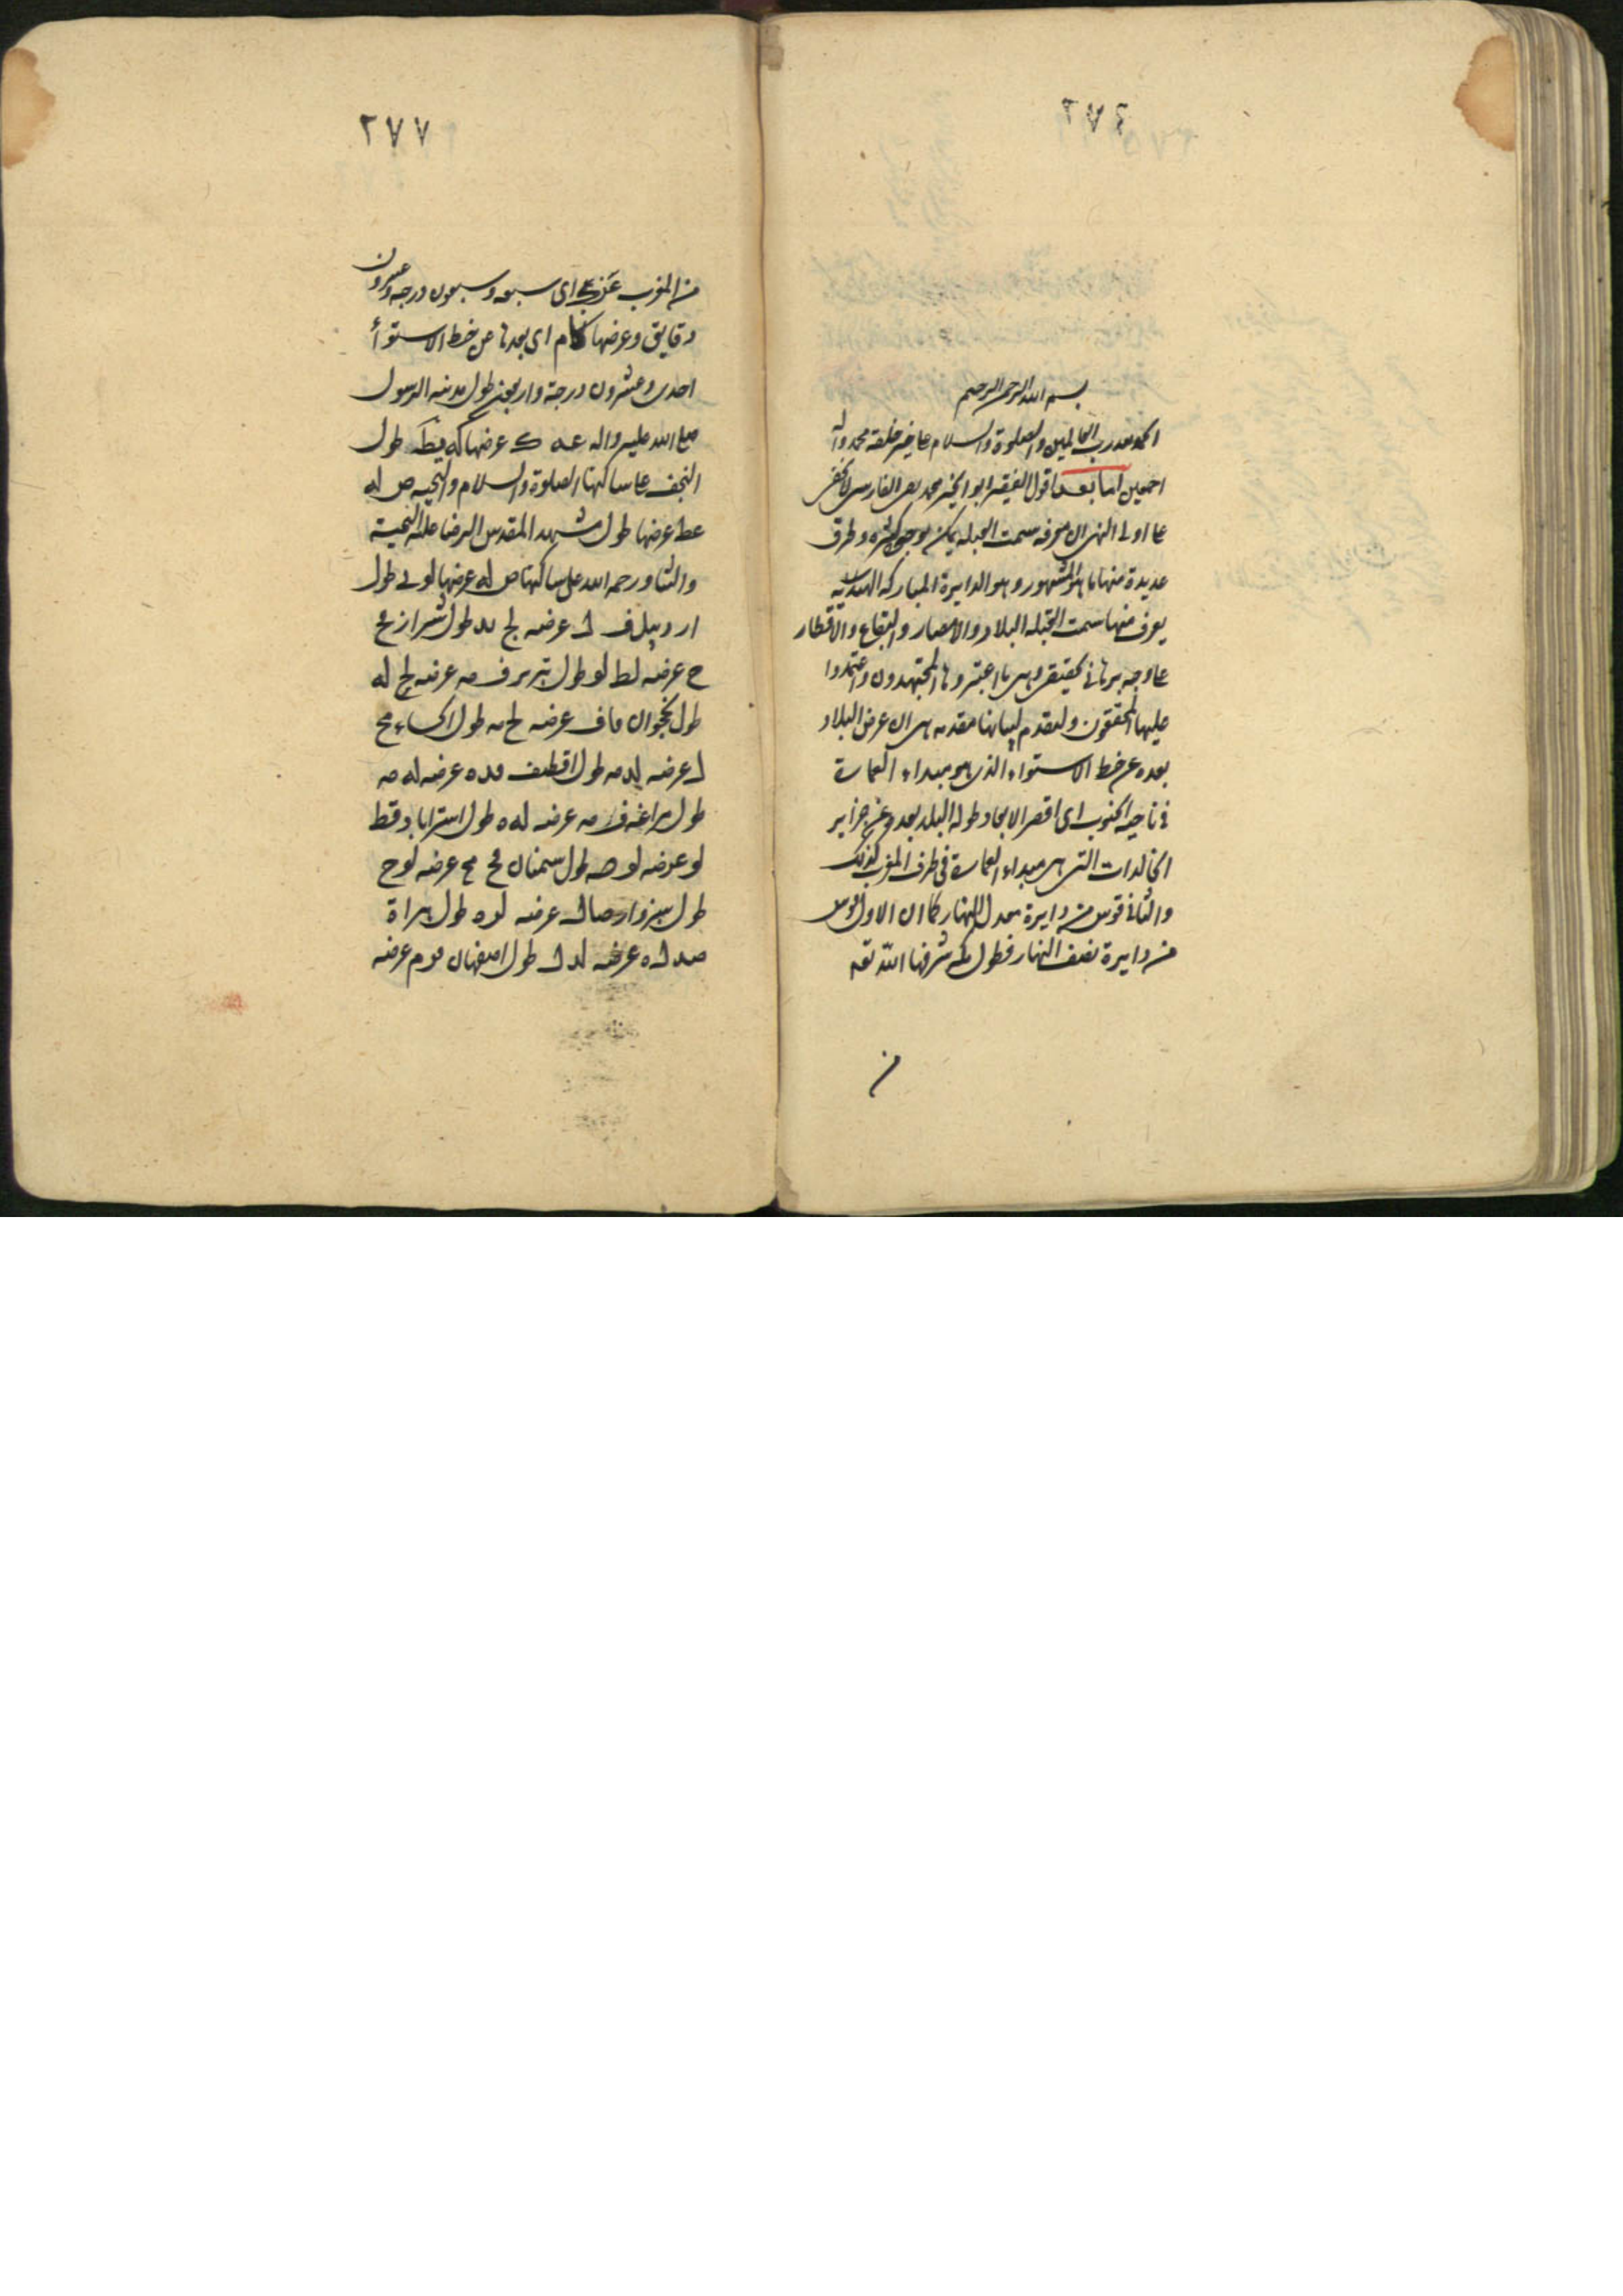 ٢٧٦
بسم الله الرحمن الرحيم
الحمد لله رب العالمين والصلوة والسلام على خير خلقه محمد واله
اجمعين اما بعد اقول الفقير ابو الخير محمد الفارسى لا يخفى
على اولى النهى ان معرفه سمت القبله يمكن بوجوه كثيره وطرق
عديدة منها ما هو المشهور وهو الدايرة المباركه الهنديه
يعرف منها سمت القبله البلاد والامصار والبقاع والاقطار
على وجه برهانى وهى ما اعتبروها المجتهدون واعتمدوا
عليها المحققون ولنقدم لبيانها مقدمه هى ان عرض البلاد
بعده عن خط الاستواء الذى هو مبداء العمارة
فى ناحيه الجنوب اى اقصر الابعاد وطوله البلد بعده عن جزاير
الخالدات التى هى مبداء العمارة فى طرف المغرب كذلك
والثانى قوس من دايرة معدل النهار كما ان الاول قوس
من دايرة نصف النهار فطول مكه شرفها الله تعه
من
٢٧٧
من المغرب عزى اى سبعه وسبعون درجه وعشرون
دقايق وعرضها كام اى بعدها عن خط الاستوآء
احدى وعشرون درجة واربعين طول مدينه الرسول
صلى الله عليه واله عه ك عرضها كه طول
النجف على ساكنها الصلوة والسلام والتحيه
عط عرضها طول مشهد المقدس الرضا عليه التحية
والثنا ورحمه الله على ساكنها ص له عرضها لو طول
اردبيل ف ل عرضه لح طول شيراز فح
ح عرضه لط لو طول تبريز ف مه عرضه لح له
طول نخجوان فاف عرضه لح مه طول احساء مح
ل عرضه لد مه طول قطيف فده عرضه له مه
طول مراغه ف مه عرضه له ه طول استراباد قط
لو عرضه لو طول سمنان فح مح عرضه لو ح
طول سبزوار صا ل عرضه لو ه طول هراة
صد ل ه عرضه لد ل طول اصفهان فو م عرضه